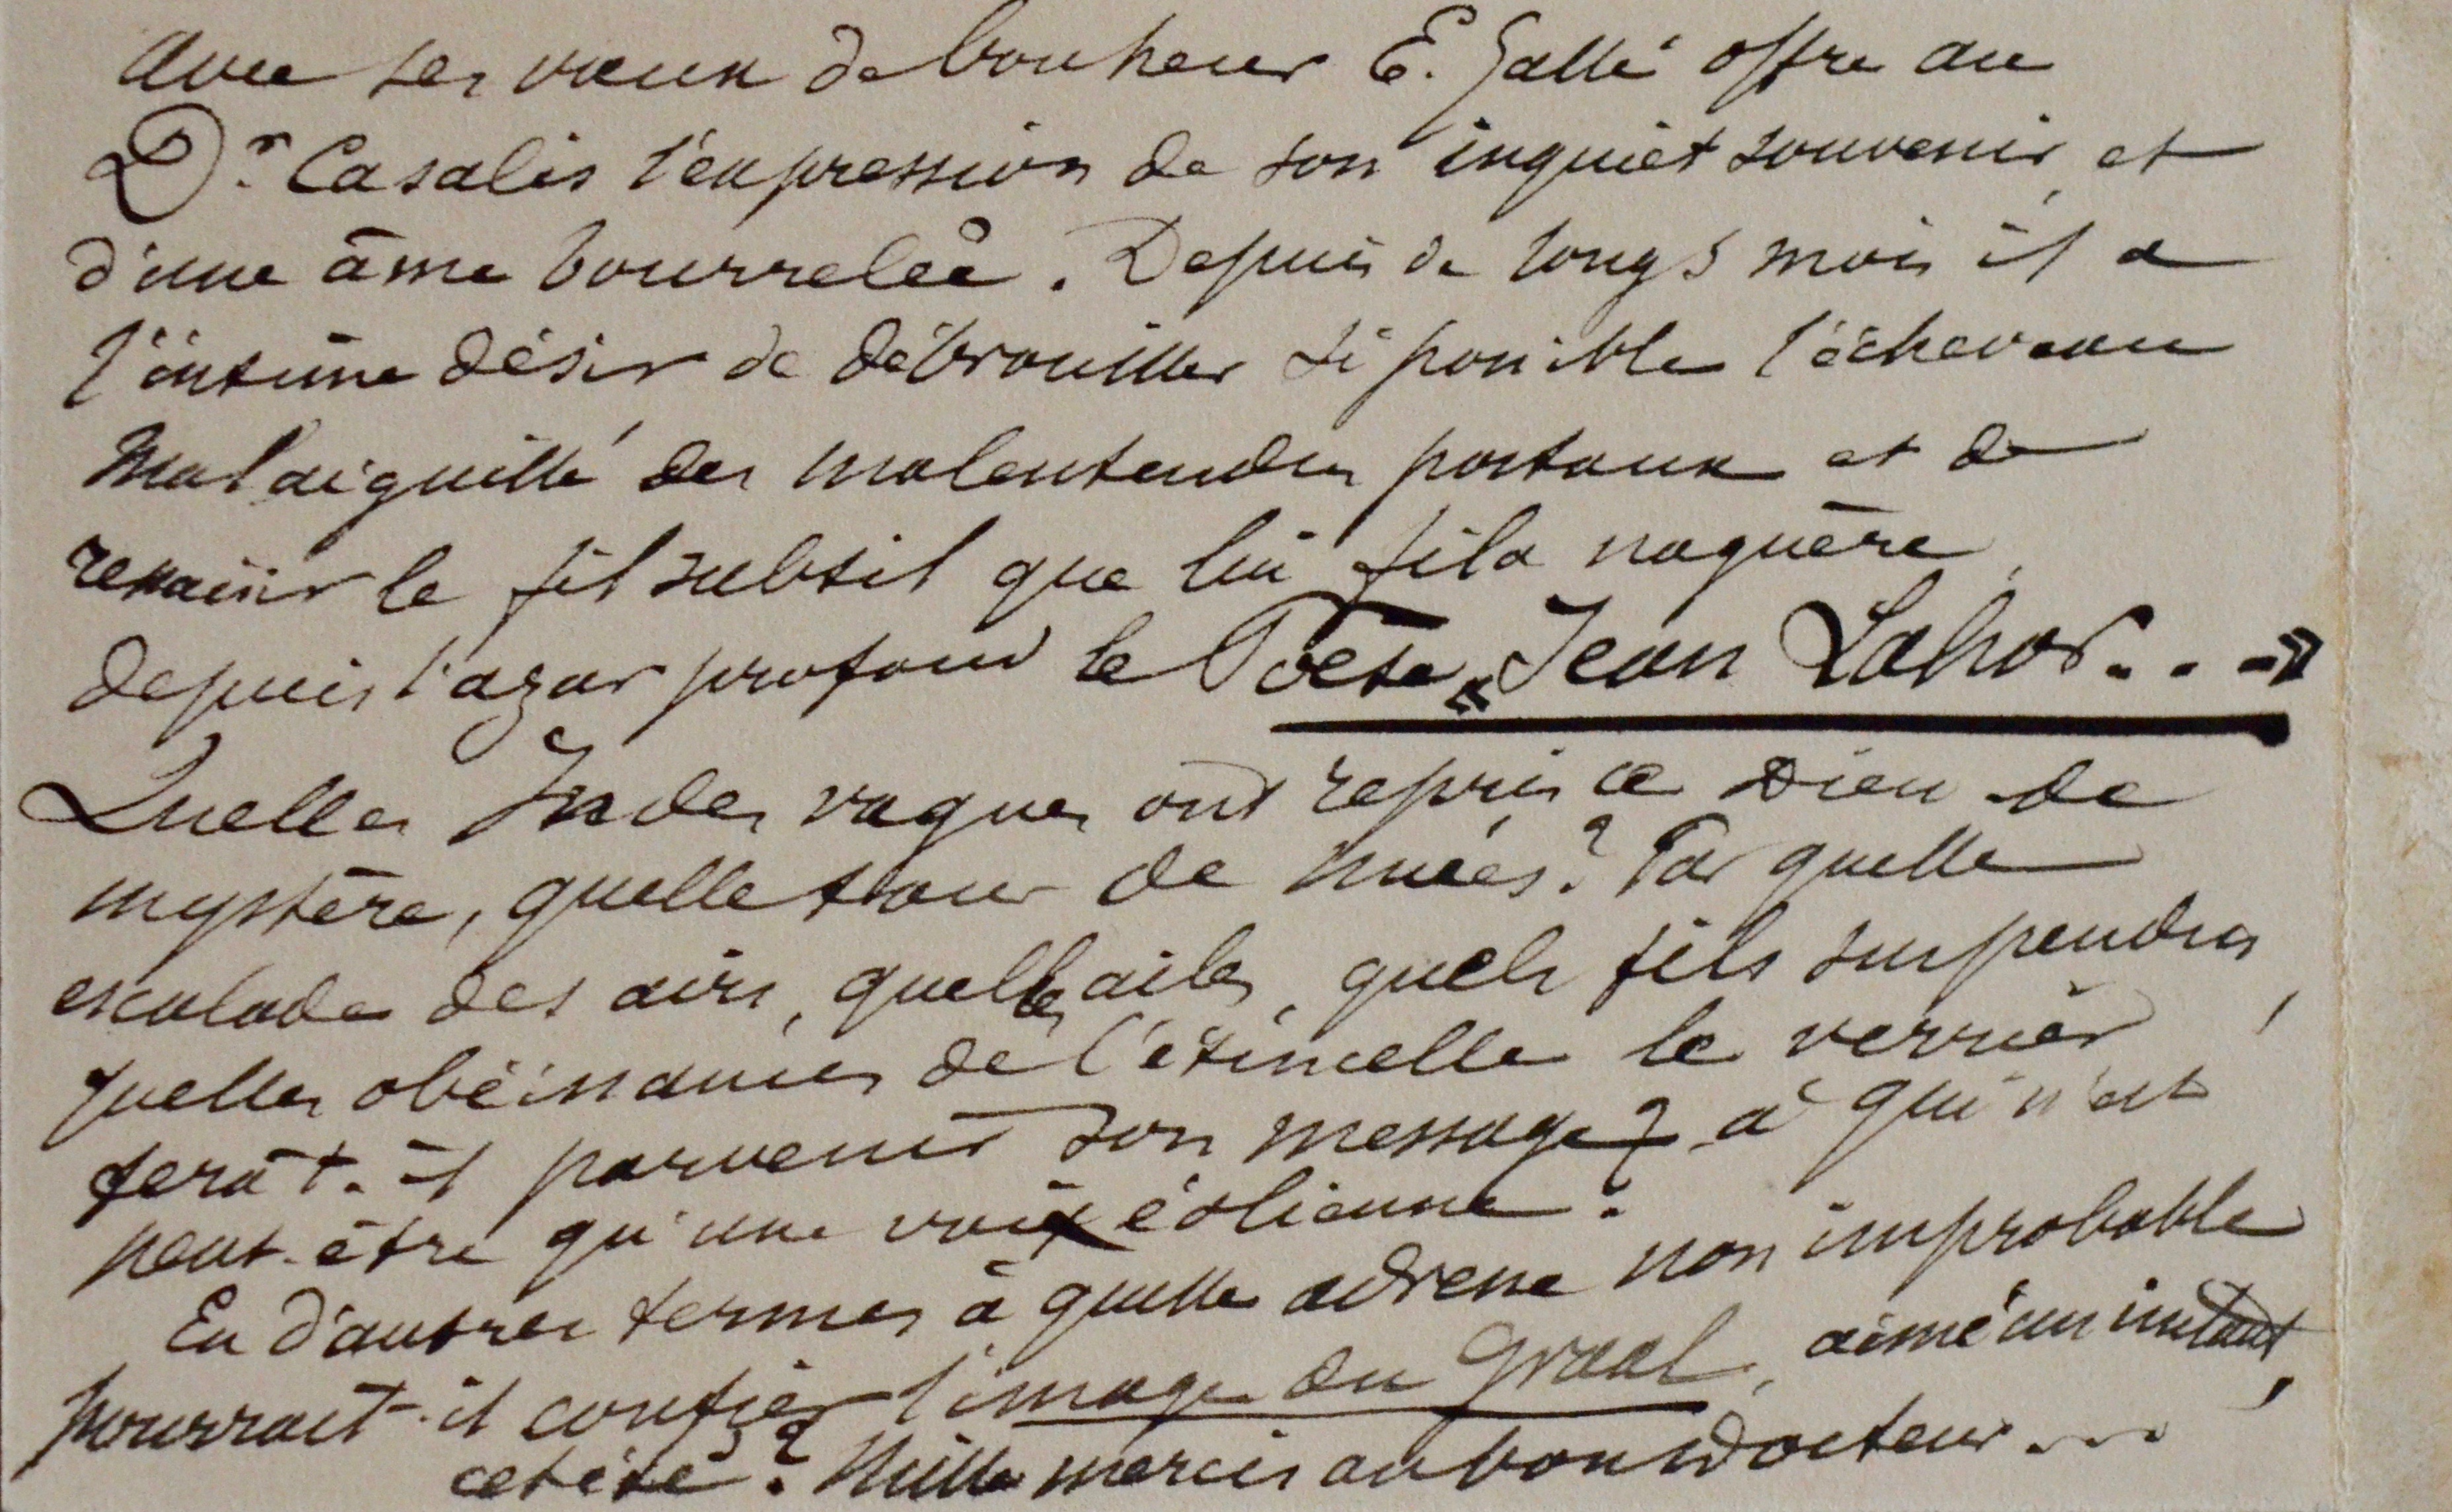 Avec ses vœux de bonheur E. Gallé offre au
Dr. Casalis l'expression de son inquiet souvenir, et
d'une âme bourrelée. Depuis de longs mois il a
l'intime désir de débrouiller si possible l'écheveau
mal aiguillé des malentendus postaux et de
ressaisir le fil subtil que lui fila naguère,
depuis l'azur profond le Poète « Jean Lahor... »
Quelles Indes vagues ont repris ce Dieu de
mystère, quelle tour de nuées? Par quelle
escalade des airs, quelles ailes, quels fils suspendus,
quelles obéissances de l'étincelle le verrier
ferat-il parvenir son message à qui n'est
peut-être qu'une voix éolienne?
En d'autres termes à quelle adresse non improbable
pourrait-il confier l'image du Graal, aimé un instant,
cet été? Mille mercis au bon Docteur...